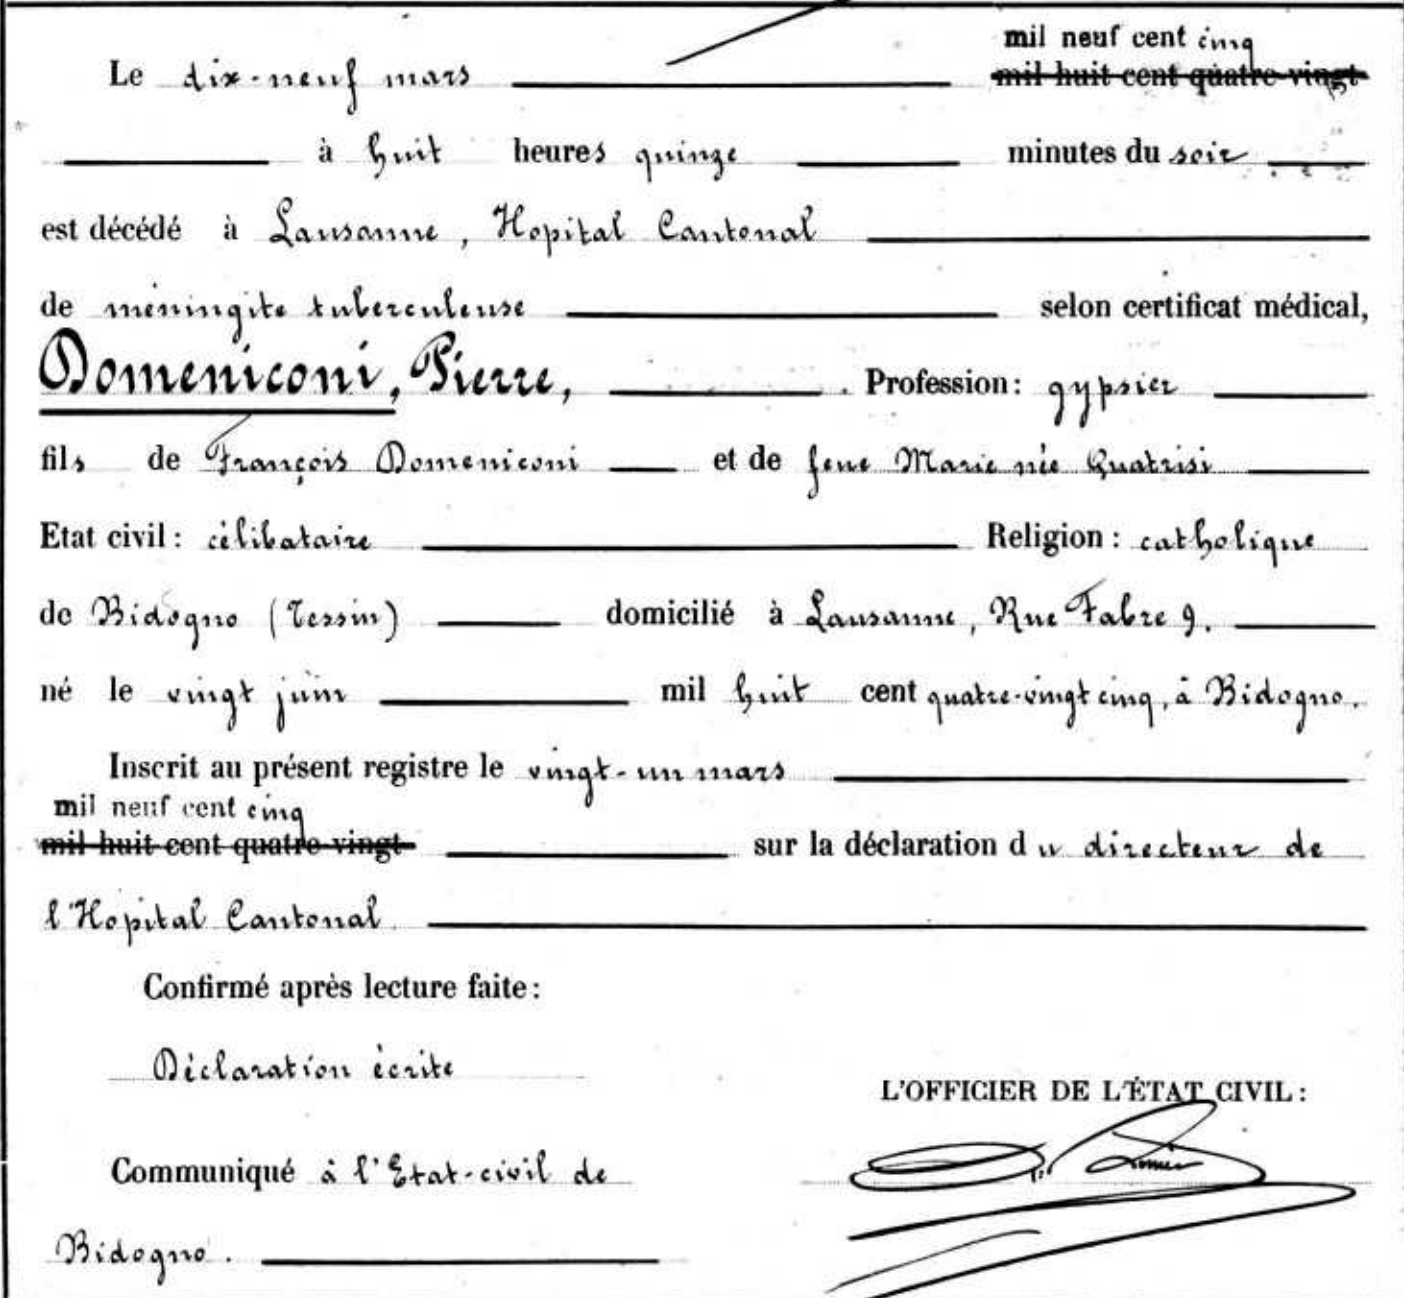 mil neuf cent cinq
Le dix-neuf mars mil huit cent quatre-vingt
à huit heures quinze minutes du soir
est décédé à Lausanne, Hopital Cantonal
de méningite tuberculeuse selon certificat médical,
Domeniconi, Pierre, Profession: gypsier
fils de François Domeniconi et de feue Marie née Quatrisi
Etat civil: célibataire Religion: catholique
de Bidogno (Tessin) domicilié à Lausanne, Rue Fabre 9.
né le vingt juin mil huit cent quatre-vingt cinq, à Bidogno.
Inscrit au présent registre le vingt-un mars
mil neuf cent cinq
mil huit cent quatre-vingt sur la déclaration du directeur de
l'Hopital Cantonal
Confirmé après lecture faite:
Déclaration écrite
L'OFFICIER DE L'ÉTAT CIVIL:
Communiqué à l'Etat-civil de
Bidogno.